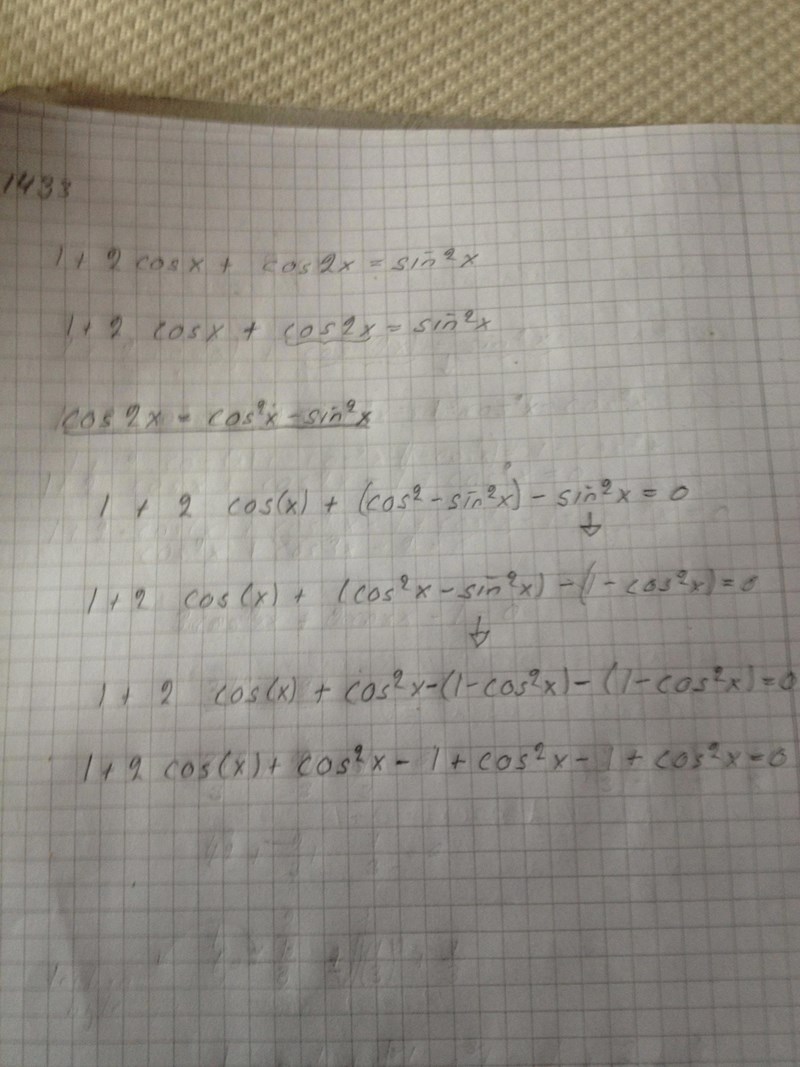 1433
1 + 2 cosx + cos2x = sin²x
1 + 2 cosx + cos2x = sin²x
cos2x = cos²x - sin²x
1 + 2 cos(x) + (cos² - sin²x) - sin²x = 0
1 + 2 cos(x) + (cos²x - sin²x) - (1 - cos²x) = 0
1 + 2 cos(x) + cos²x - (1 - cos²x) - (1 - cos²x) = 0
1 + 2 cos(x) + cos²x - 1 + cos²x - 1 + cos²x = 0